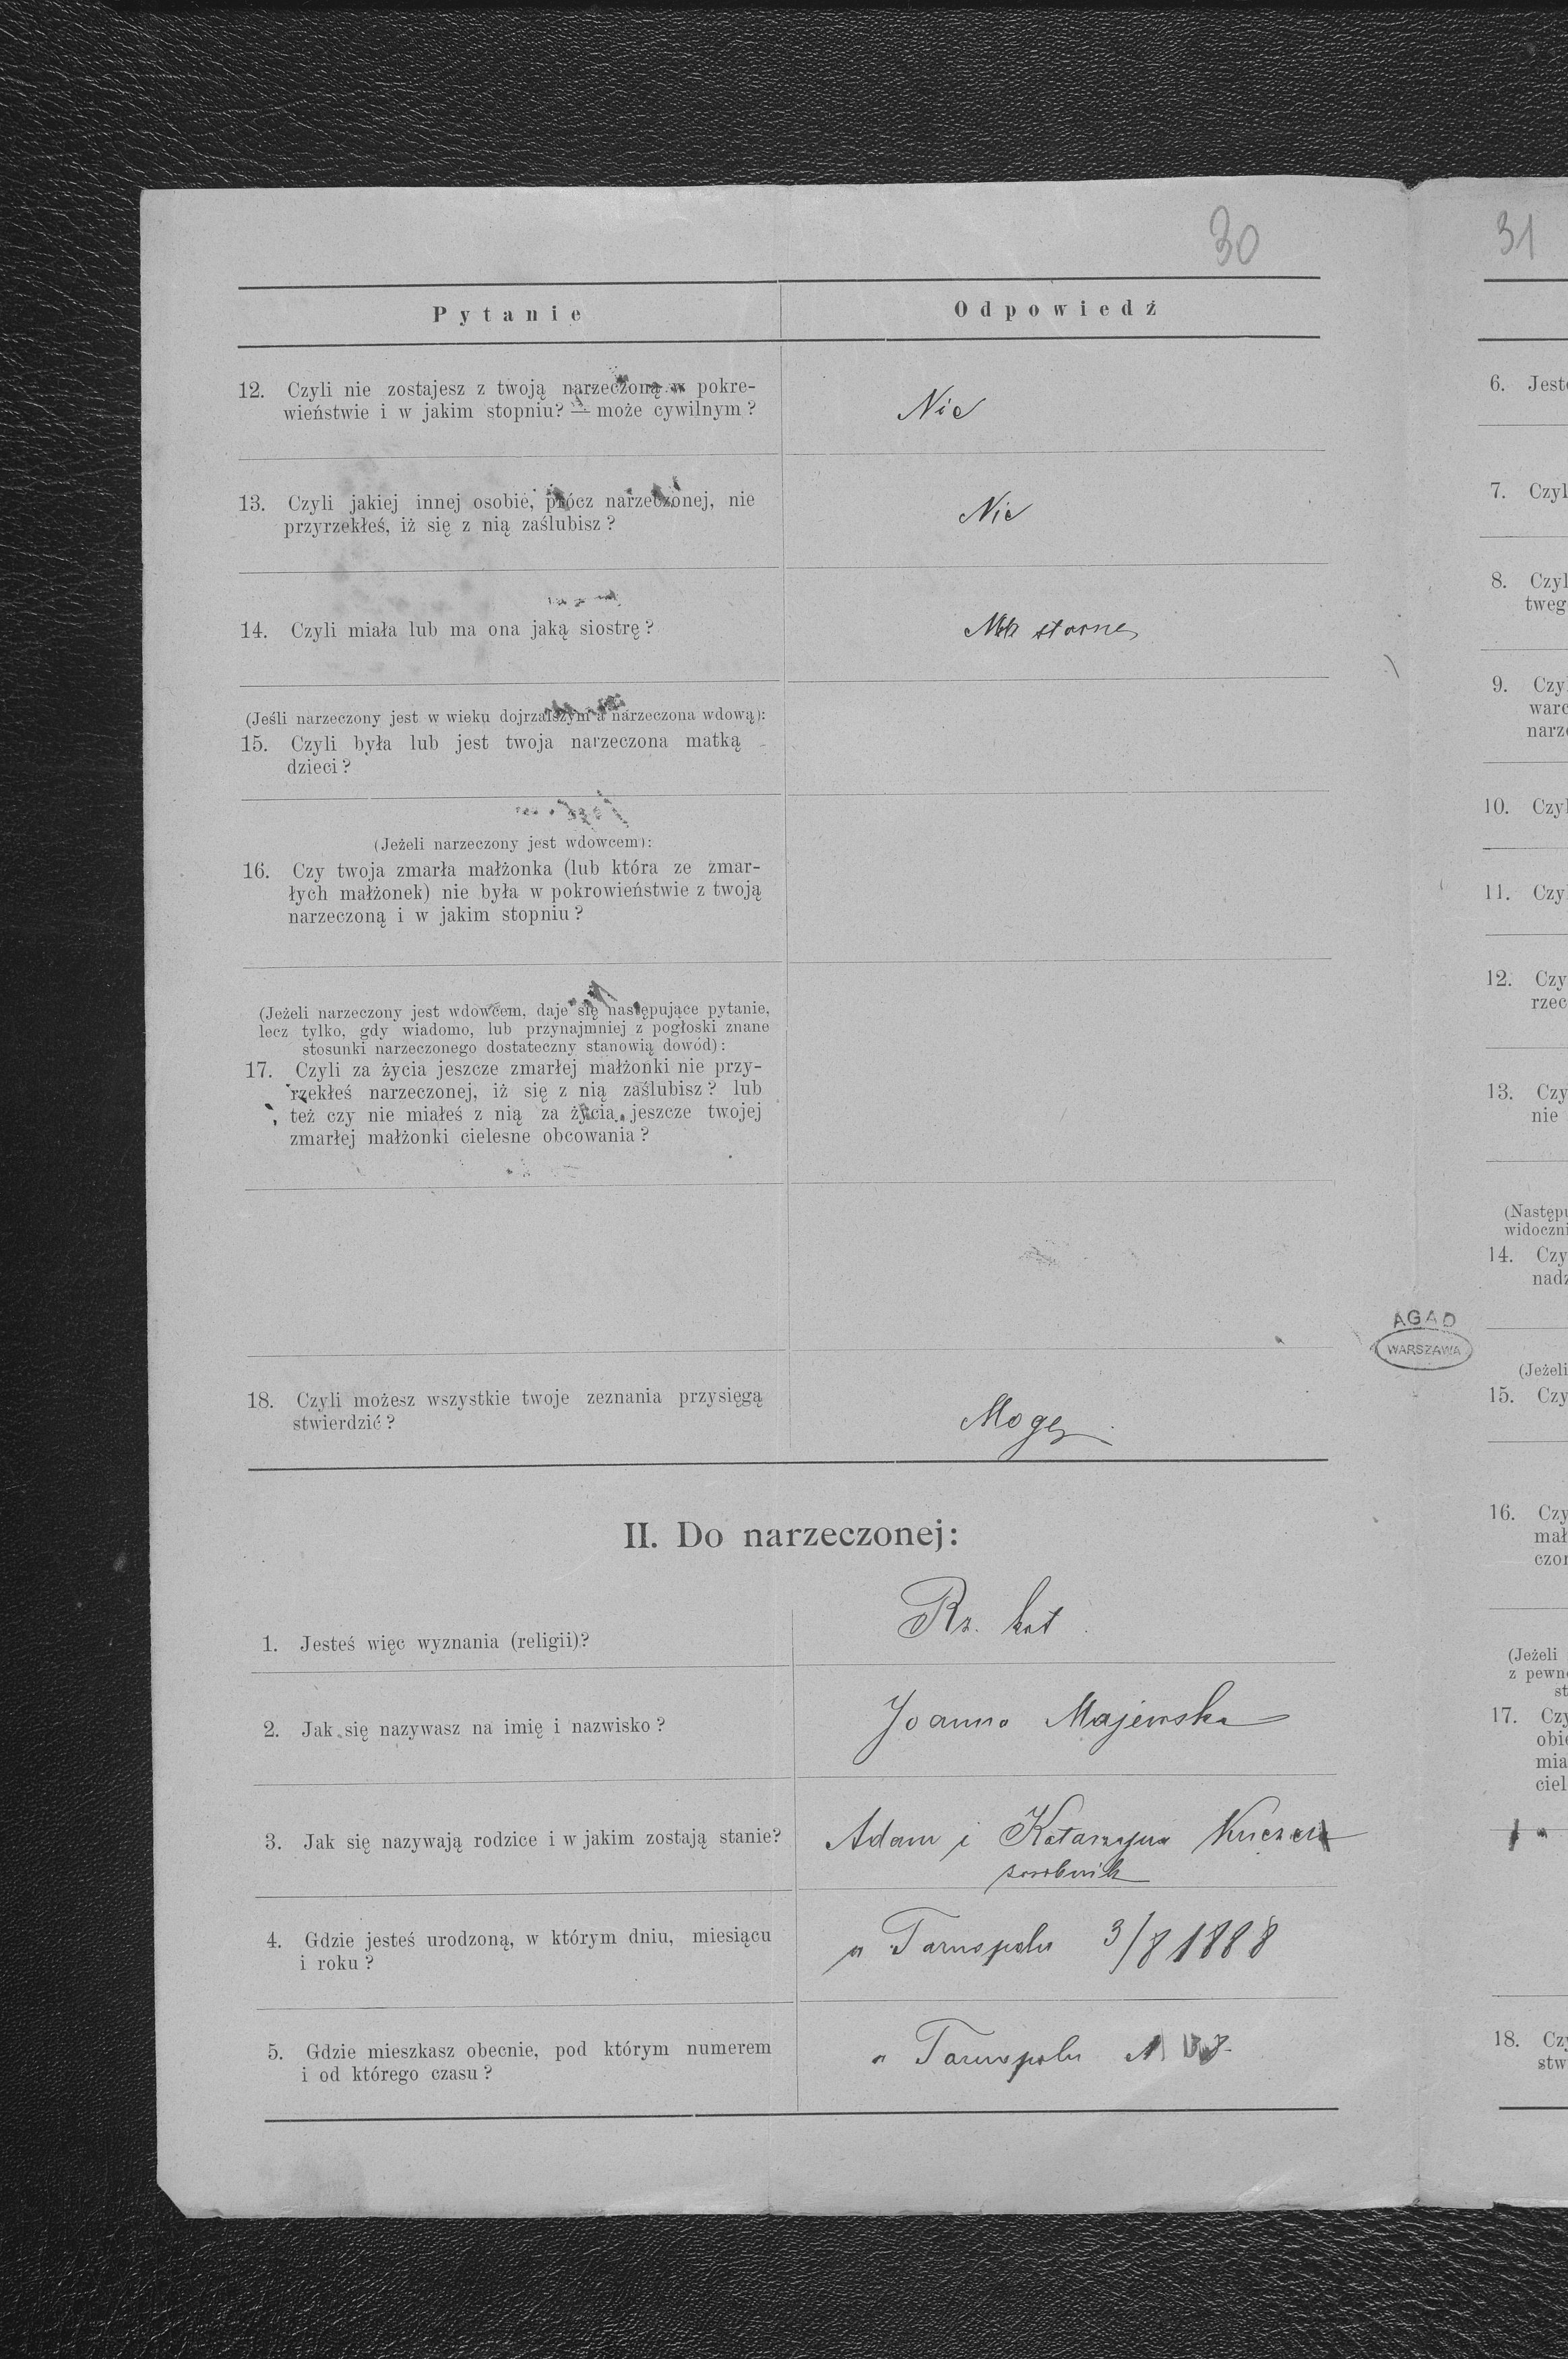 30
31
Pytanie
Odpowiedź
12. Czyli nie zostajesz z twoją narzeczoną w pokre-
wieństwie i w jakim stopniu? — może cywilnym?
Nie
13. Czyli jakiej innej osobie, prócz narzeczonej, nie
przyrzekłeś, iż się z nią zaślubisz?
Nie
14. Czyli miała lub ma ona jaką siostrę?
(Jeśli narzeczony jest w wieku dojrzalszym a narzeczona wdową):
15. Czyli była lub jest twoja narzeczona matką
dzieci?
(Jeżeli narzeczony jest wdowcem):
16. Czy twoja zmarła małżonka (lub która ze zmar-
łych małżonek) nie była w pokrowieństwie z twoją
narzeczoną i w jakim stopniu?
(Jeżeli narzeczony jest wdowcem, daje się następujące pytanie,
lecz tylko, gdy wiadomo, lub przynajmniej z pogłoski znane
stosunki narzeczonego dostateczny stanowią dowód):
17. Czyli za życia jeszcze zmarłej małżonki nie przy-
rzekłeś narzeczonej, iż się z nią zaślubisz? lub
też czy nie miałeś z nią za życia jeszcze twojej
zmarłej małżonki cielesne obcowania?
18. Czyli możesz wszystkie twoje zeznania przysięgą
stwierdzić?
Mogę
II. Do narzeczonej:
1. Jesteś więc wyznania (religii)?
Rz. kat
2. Jak się nazywasz na imię i nazwisko?
Joanna Majewska
3. Jak się nazywają rodzice i w jakim zostają stanie?
Adam i Katarzyna
zarobnik
4. Gdzie jesteś urodzoną, w którym dniu, miesiącu
i roku?
w Tarnopolu 3/8 1888
5. Gdzie mieszkasz obecnie, pod którym numerem
i od którego czasu?
w Tarnopolu
AGAD
WARSZAWA
6. Jest
7. Czyl
8. Czyl
tweg
9. Czy
warc
narz
10. Czy
11. Czy
12. Czy
rzec
13. Czy
nie
(Następ
widoczni
14. Czy
nad
(Jeżeli
15. Czy
16. Czy
mał
czo
(Jeżeli
z pewn
st
17. Czy
obi
mia
ciel
18. Cz
stw